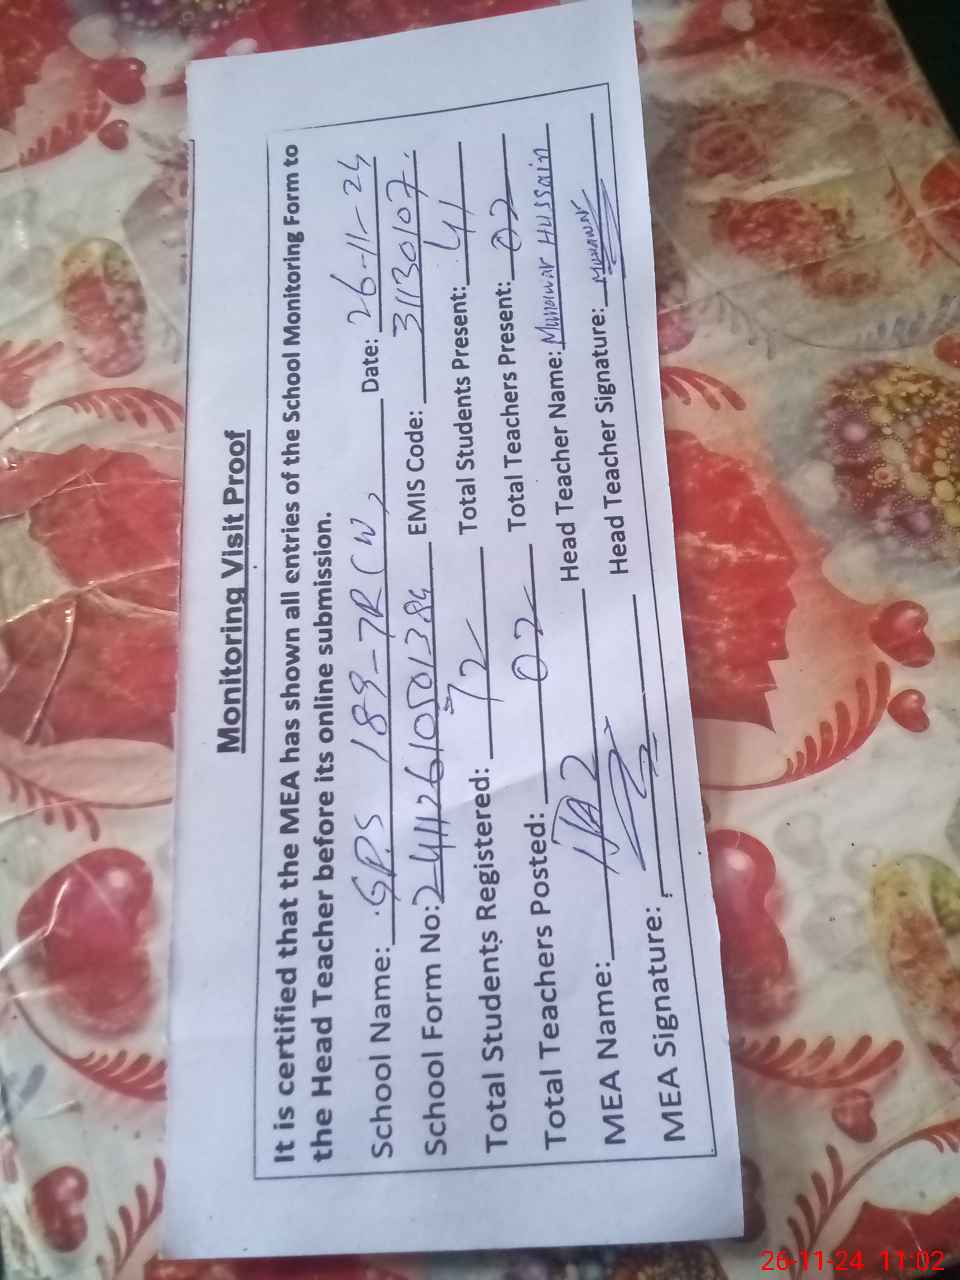 Monitoring Visit Proof
It is certified that the MEA has shown all entries of the School Monitoring Form to
the Head Teacher before its online submission.
School Name: GPS 189-7R (W) Date: 26-11-24
School Form No: EMIS Code: 31130107
Total Students Registered: 72 Total Students Present: 41
Total Teachers Posted: 02 Total Teachers Present: 02
MEA Name: Head Teacher Name: Munawar Hussain
MEA Signature: Head Teacher Signature: Munawar
26-11-24 11:02